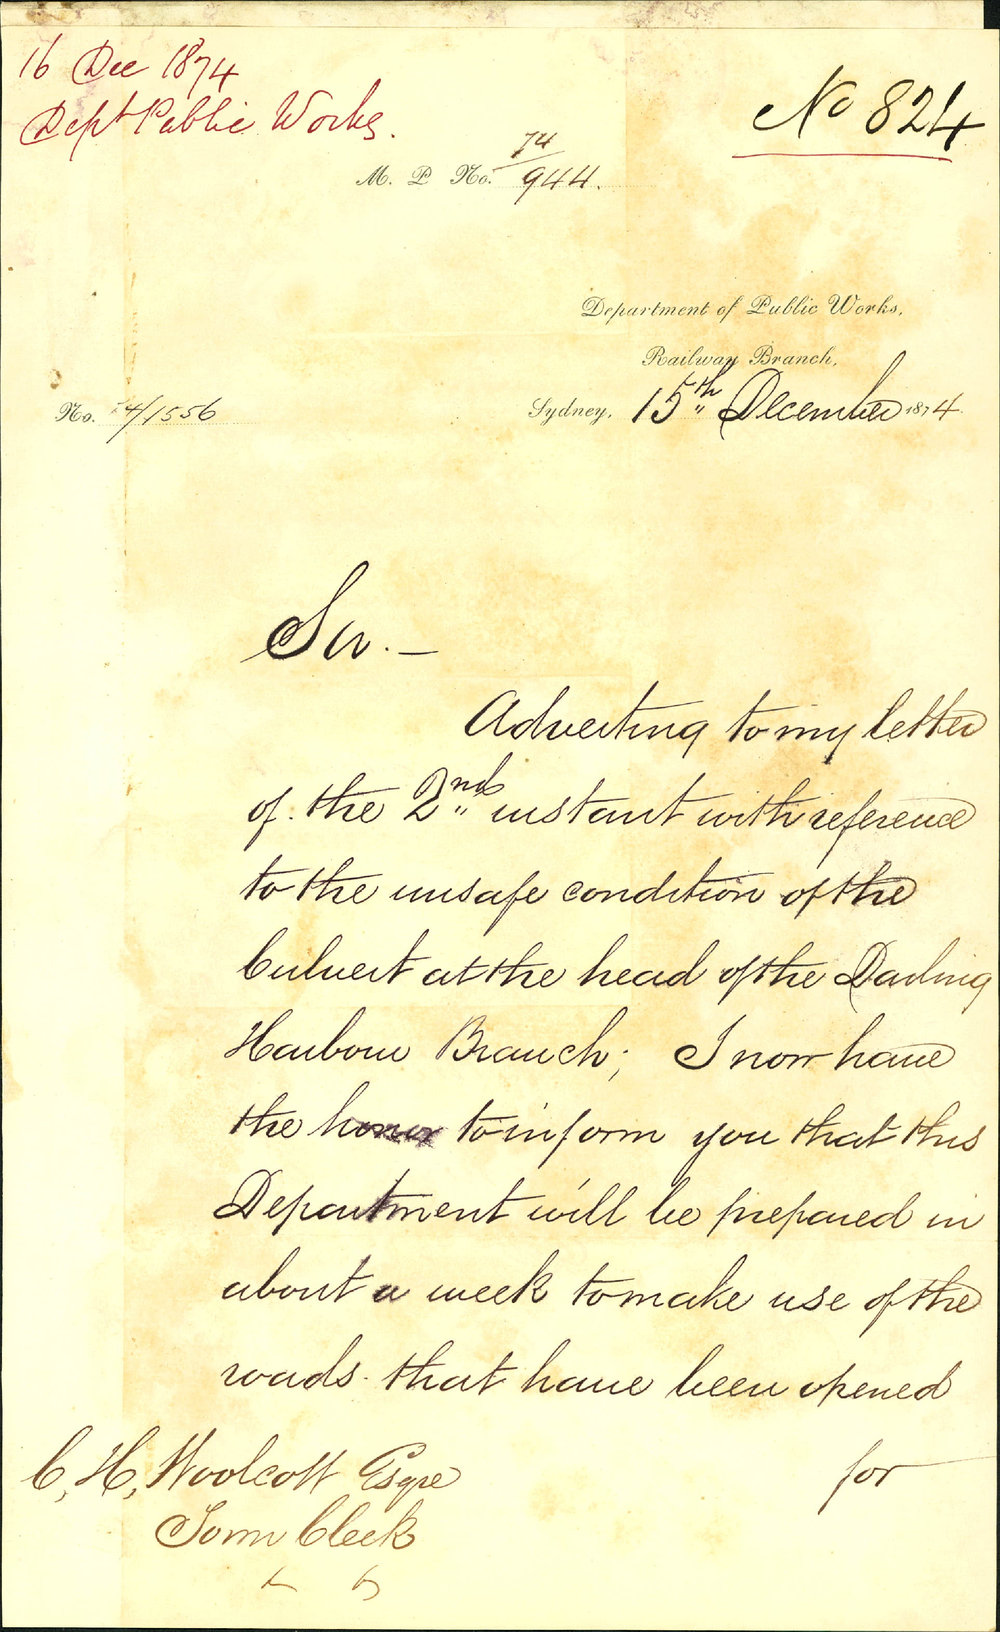 16 Dec 1874
Dept Public Works.
No 824
M. P. No. 74/944.
Department of Public Works,
Railway Branch,
No. 74/1556
Sydney, 15th December 1874.
Sir. —
Adverting to my letter
of the 2nd instant with reference
to the unsafe condition of the
Culvert at the head of the Darling
Harbour Branch; I now have
the honor to inform you that this
Department will be prepared in
about a week to make use of the
roads that have been opened
for
C, H, Woolcott Esqre
Town Clerk